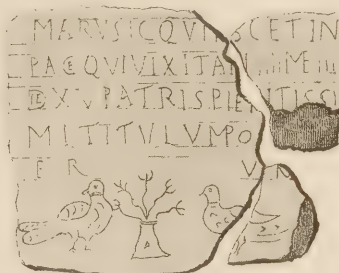 MARVSICQVI SCETIN
PACEQVIVIXITAN IIII ME III
DIEXV PATRISPIENTISSI
MITITVLVMPO
ER VN